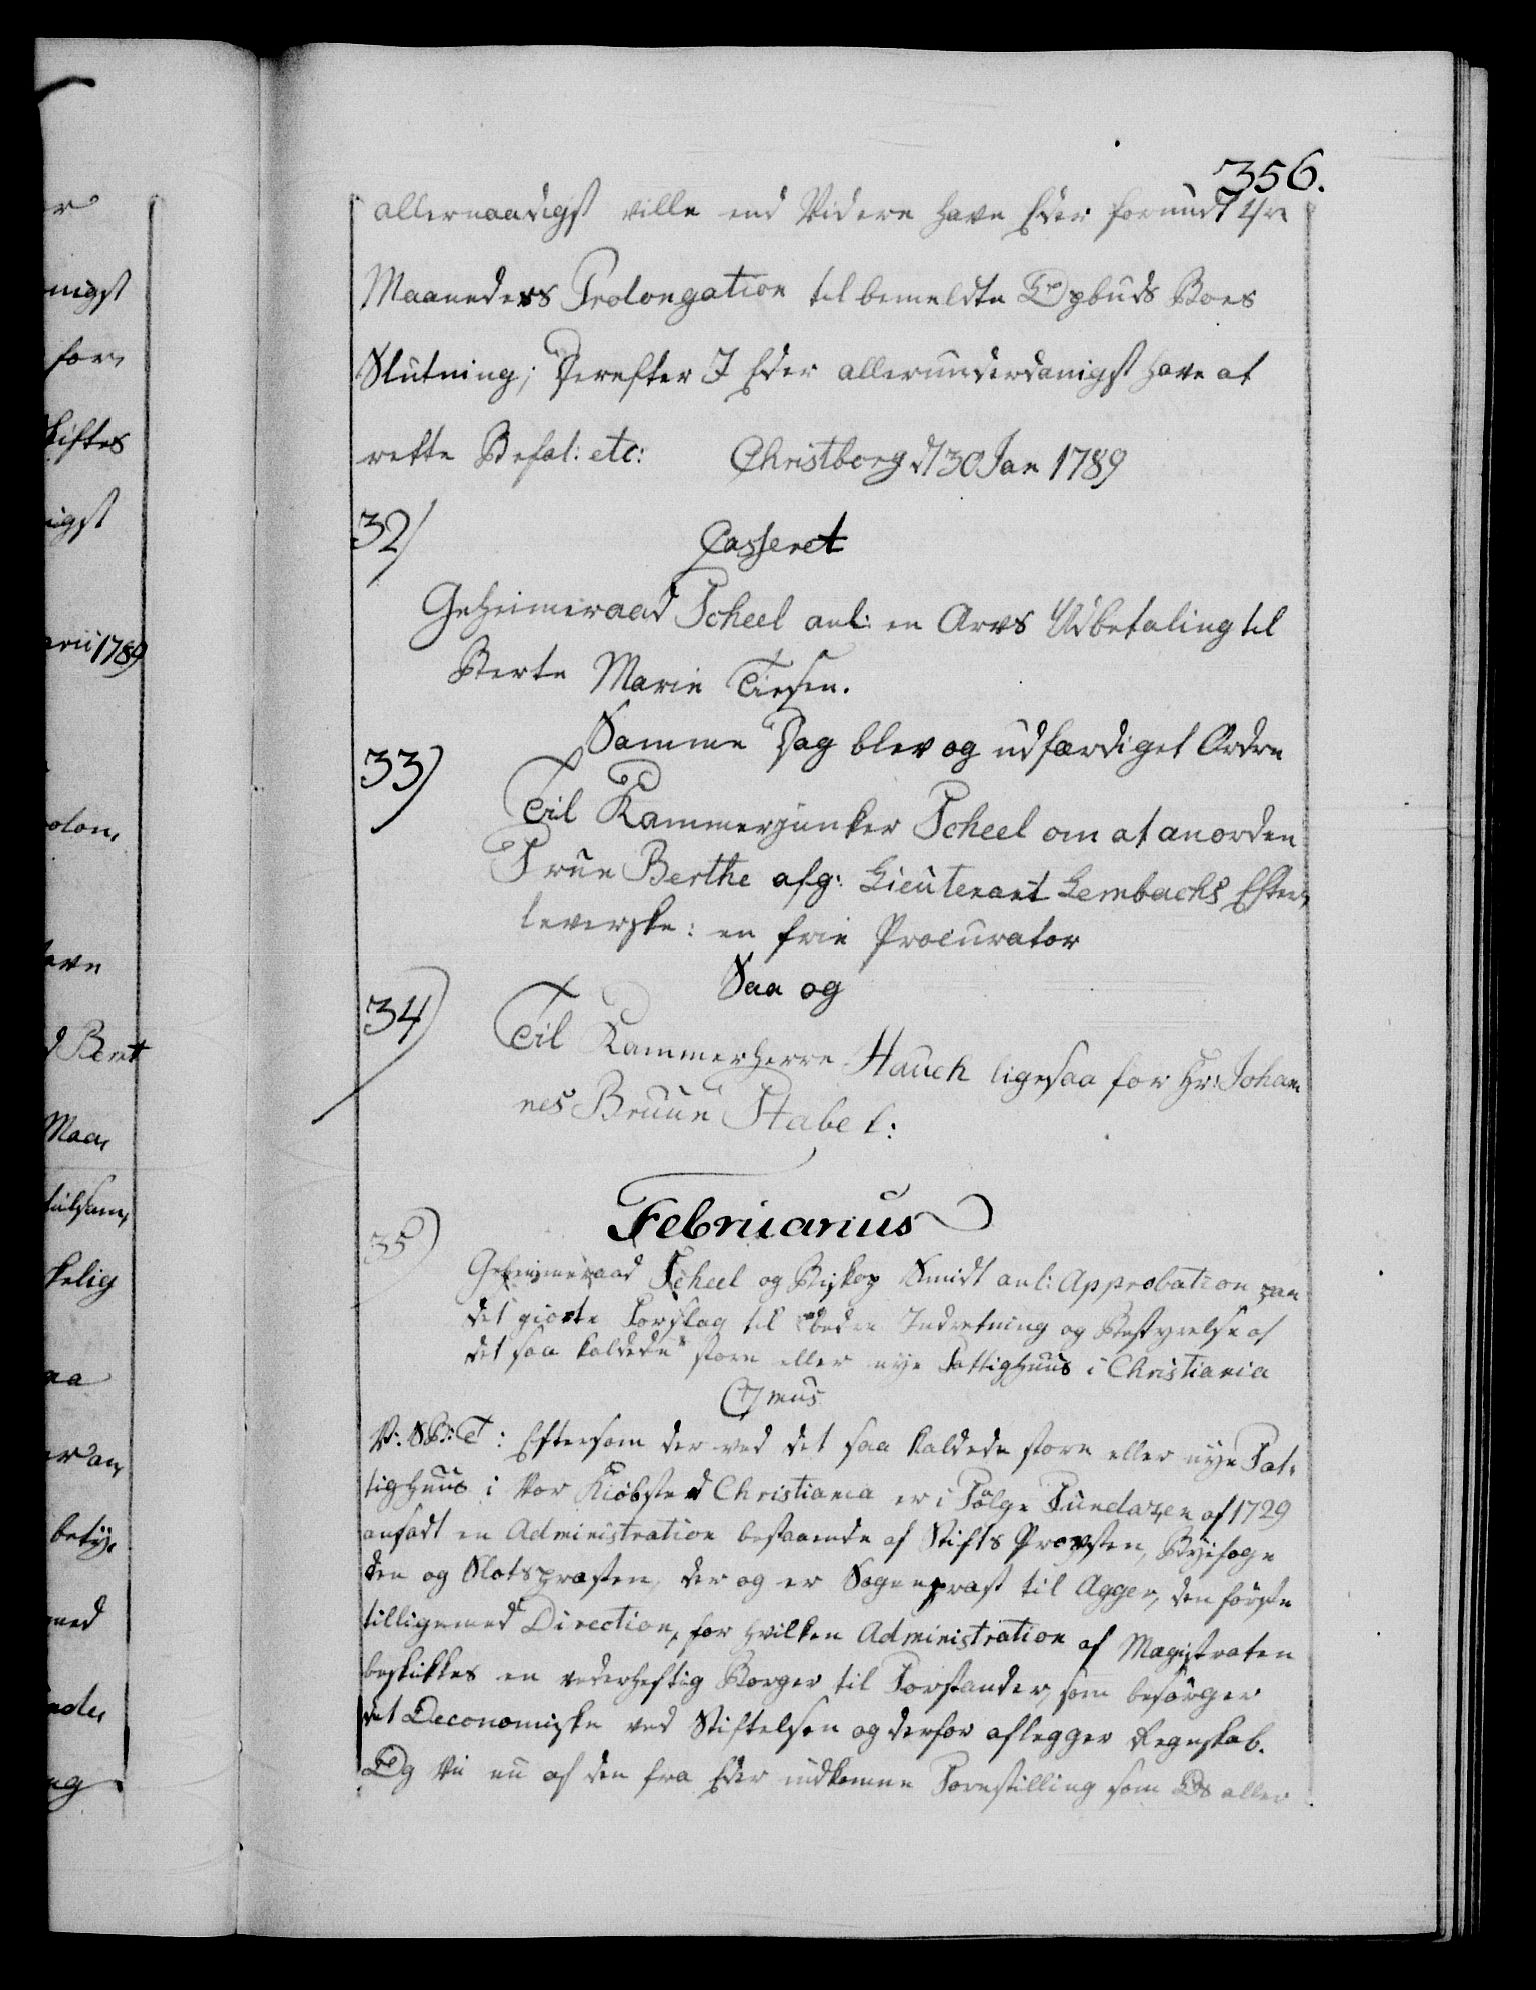 356.
allernaadigst ville end Videre have Eder forundt 4re
Maaneders Prolongation til bemeldte Opbuds Boes
Slutning; Derefter I Eder allerunderdanigst have at
rette Befal: etc: Christborg d 30 Jan 1789
32) Casseret
Geheimeraad Scheel anl: en Arvs Udbetaling til
Berte Marie
Samme Dag blev og udfærdiget Ordre
33) Til Kammerjunker Scheel om at anordne
Frue Berthe afg: Lieutenant Lembachs Efter,
leverske: en frie Procurator
Saa og
34) Til Kammerherre Hauch ligesaa for Hr: Johan
nes Bruun Stabel:
Februarius
35) Geheimeraad Scheel og Biskop Smidt anl: Approbation paa
det giorte Forslag til bedre Indretning og Bestyrelse af
det saa kaldede store eller nye Fattighuus i Christiania
C 7mus
V: SB: T: Eftersom der ved det saa kaldede store eller nye Fat,
tighuus i Vor Kiöbsted Christiania er i Fölge Fundatzen af 1729
ansadt en Administration bestaaende af Stifts Provsten, Byefoge
den og Slotspræsten, der og er Sognepræst til Agger, den förste
tilligemed Direction, for hvilken Administration af Magistraten
beskikkes en vederheftig Borger til Forstander, som besörger
det Oeconomiske ved Stiftelsen og derfor aflegger Regnskab.
Og Vii nu af den fra Eder indkomne Forestilling som Os aller